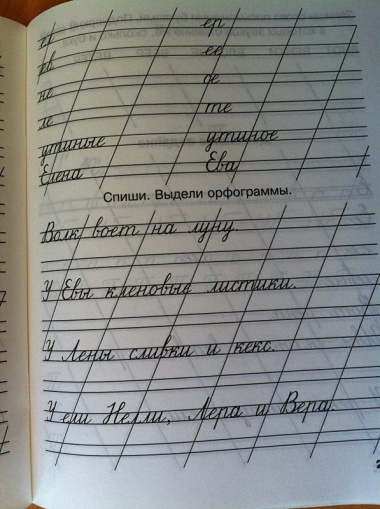 ер
ев ее
не де
ле те
утиные утиное
Елена Ева
Спиши. Выдели орфограммы.
Волк воет на луну.
У Евы кленовые листики.
У Лены сливки и кекс.
У ели Нелли, Лера и Вера.